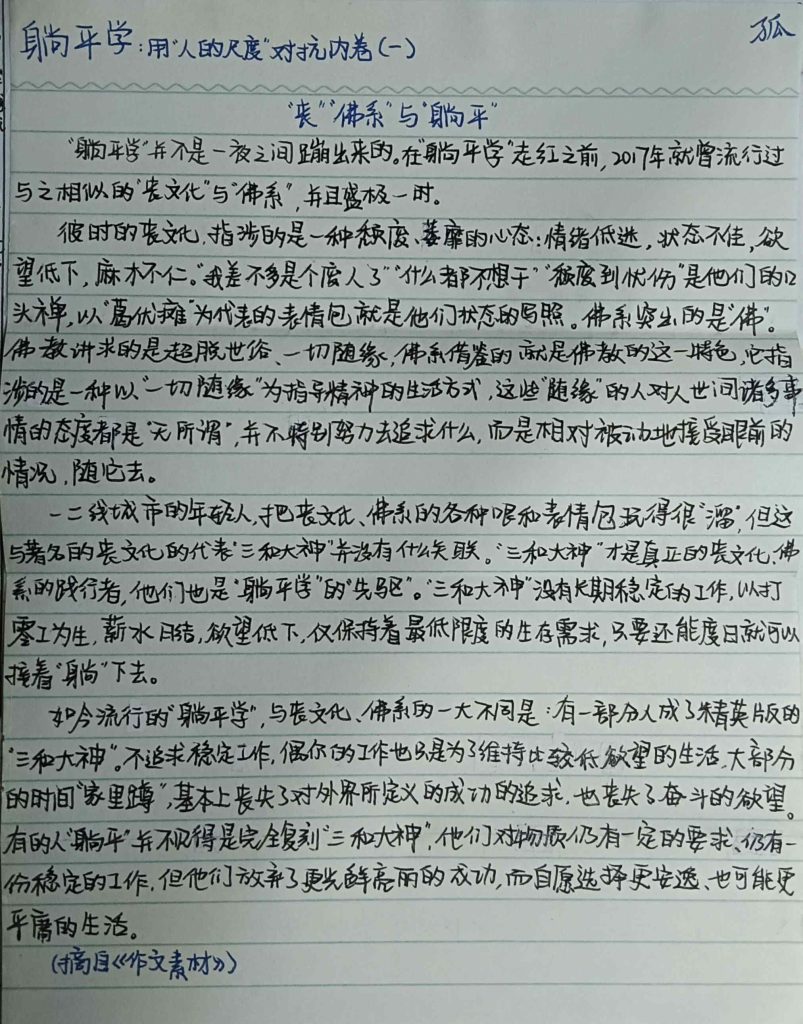 孤
躺平学:用"人的尺度"对抗内卷(一)
"丧""佛系"与"躺平"
"躺平学"并不是一夜之间蹦出来的。在"躺平学"走红之前,2017年就曾流行过
与之相似的"丧文化"与"佛系",并且盛极一时。
彼时的丧文化,指涉的是一种颓废、萎靡的心态:情绪低迷,状态不佳,欲
望低下,麻木不仁。"我差不多是个废人了""什么都不想干""颓废到忧伤"是他们的口
头禅,以"葛优瘫"为代表的表情包就是他们状态的写照。佛系突出的是"佛"。
佛教讲求的是超脱世俗、一切随缘,佛系借鉴的就是佛教的这一特色,它指
涉的是一种以"一切随缘"为指导精神的生活方式,这些"随缘"的人对人世间诸多事
情的态度都是"无所谓",并不特别努力去追求什么,而是相对被动地接受眼前的
情况,随它去。
一二线城市的年轻人,把丧文化、佛系的各种哏和表情包玩得很"溜",但这
与著名的丧文化的代表"三和大神"并没有什么关联。"三和大神"才是真正的丧文化、佛
系的践行者,他们也是"躺平学"的"先驱"。"三和大神"没有长期稳定的工作,以打
零工为生,薪水日结,欲望低下,仅保持着最低限度的生存需求,只要还能度日就可以
接着"躺"下去。
如今流行的"躺平学",与丧文化、佛系的一大不同是:有一部分人成了精英版的
"三和大神"。不追求稳定工作,偶尔的工作也只是为了维持比较低欲望的生活,大部分
的时间"家里蹲",基本上丧失了对外界所定义的成功的追求,也丧失了奋斗的欲望。
有的人"躺平"并不见得是完全复刻"三和大神",他们对物质仍有一定的要求、仍有一
份稳定的工作,但他们放弃了更光鲜亮丽的成功,而自愿选择更安逸、也可能更
平庸的生活。
(摘自《作文素材》)